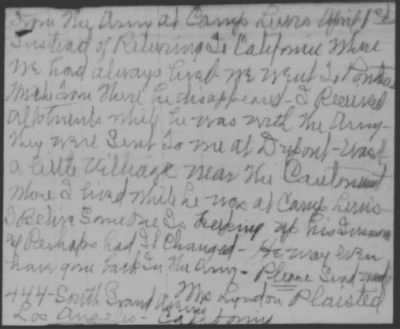 From the Army at Camp Lewis April 1st
Instead of Returning To California Where
We had always lived we went To Pontiac
Mich From there he disappeared - I Received
allotments while he was with the Army -
they were Sent To me at Dupont - Wash
a little Village near the Cantonment
Where I lived while he was at Camp Lewis -
I Believe Someone Is Keeping up his Insurance
or Perhaps had It Changed - He may Even
have gone back In the Army - Please Send
Mrs Lyndon Plaisted
444 - South Grand Avenue
Los Angeles - California